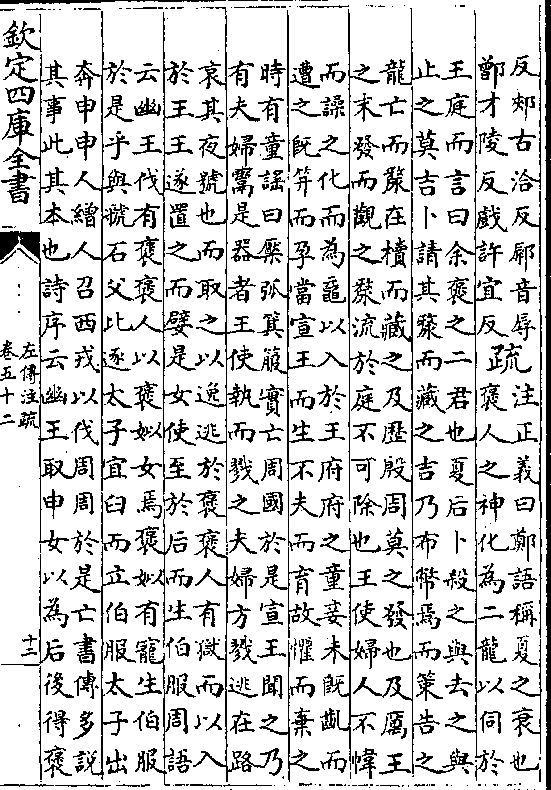 反郟古洽反鄏音辱
鄫才陵反戲許宜反
疏
注正義曰鄭語稱夏之衰也
褒人之神化為二龍以伺於
王庭而言曰余褒之二君也夏后卜殺之與去之與
止之莫吉卜請其漦而藏之吉乃布幣焉而策告之
龍亡而漦在櫝而藏之及歷殷周莫之發也及厲王
之末發而觀之漦流於庭不可除也王使婦人不幃
而譟之化而為黿以入於王府府之童妾未既齓而
遭之既筓而孕當宣王而生不夫而育故懼而棄之
時有童謠曰檿弧箕箙實亡周國於是宣王聞之乃
有夫婦鬻是器者王使執而戮之夫婦方戮逃在路
哀其夜號也而取之以逸逃於褒褒人有獄而以入
於王王遂置之而嬖是女使至於后而生伯服周語
云幽王伐有褒褒人以褒姒女焉褒姒有寵生伯服
於是乎與虢石父比逐太子宜臼而立伯服太子出
奔申申人繒人召西戎以伐周周於是亡書傳多說
其事此其本也詩序云幽王取申女以為后後得褒
欽定四庫全書
左傳注疏
卷五十二
十二